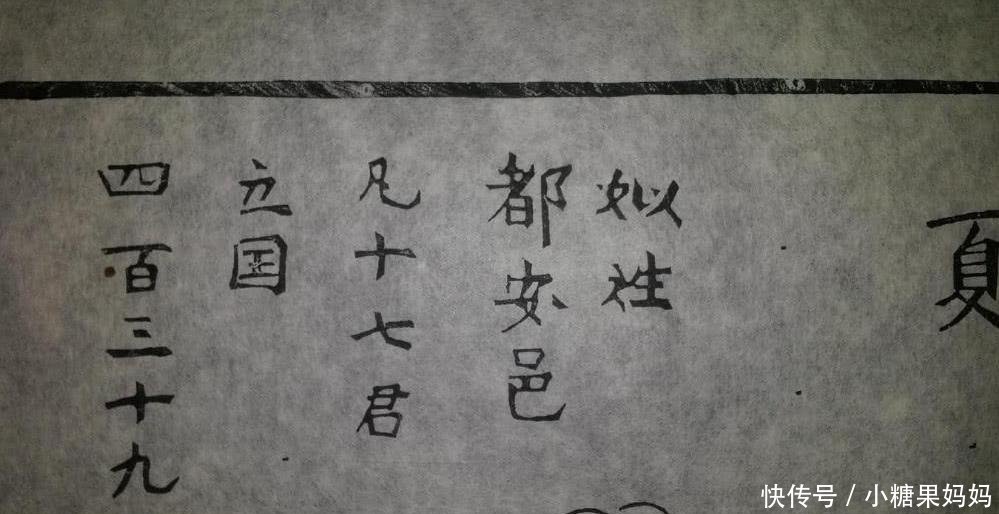 夏
姒姓
都安邑
凡十七君
立国
四百三十九
快传号 / 小糖果妈妈